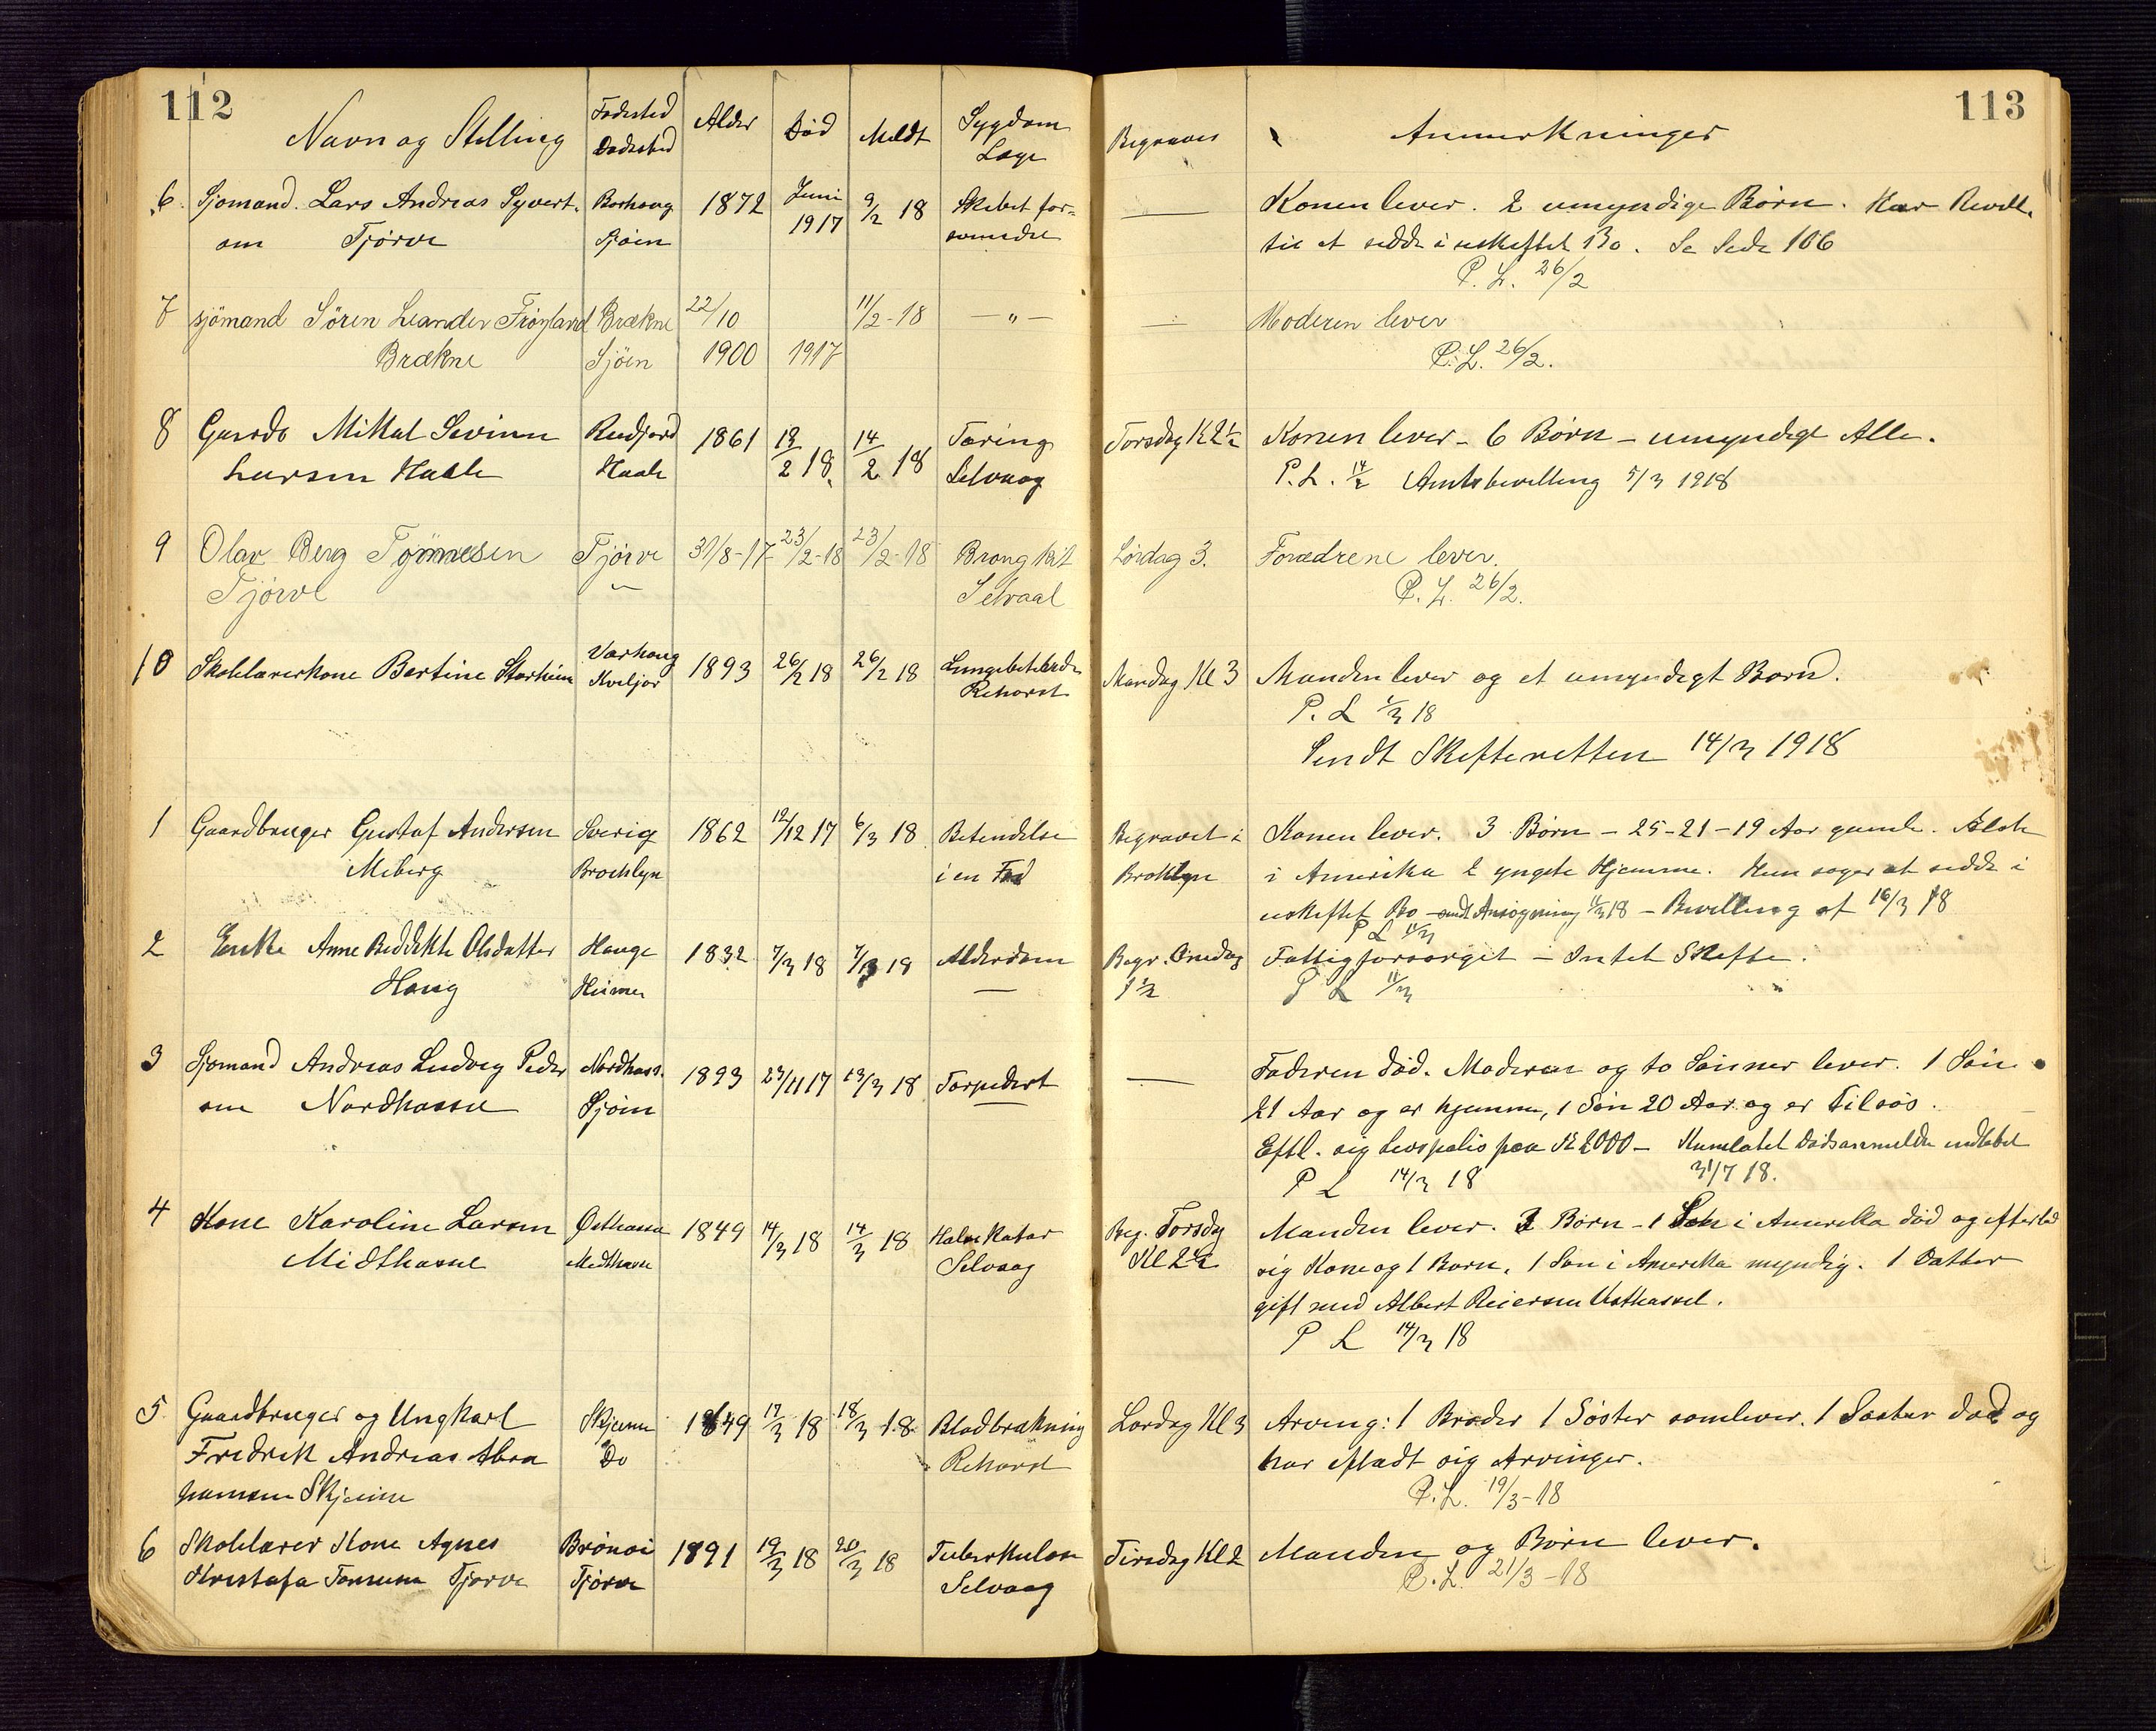 112
113
Navn og Stilling Fødested Dødssted Alder Død Meldt Sygdom Læge Begraves Anmerkninger
6 Sjømand Lars Andreas Syvert. Borhaug 1872 Juni 9/2 18 Skibet for- — Konen lever. 2 umyndige Børn. Har Bevill.
sen Tjørve Sjøen 1917 svundet til at sidde i uskiftet Bo. Se Side 106
P. L. 26/2
7 sjömand Sören Leander Fröyland Brækne 22/10 11/2-18 — " — — Moderen lever
Brækne Sjöen 1900 1917 P. L. 26/2.
8 Gaardb Mikal Severin Rudjord 1861 13/2 18. 14/2 18 Tæring Torsdag Kl 2½ Konen lever - 6 Børn - umyndige Alle.
Larsen Haale Haale Selvaag P. L. 14/2 Amtsbevilling 5/3 1918
9 Olav Berg Tønnesen Tjörve 31/8-17 23/2-18 23/2-18 Bronghit Lördag 3. Forældrene lever.
Tjörve Selvaal P. L. 26/2.
10 Skolelærerkone Bertine Storheim Varhaug 1893 26/2 18 26/2 18 Lungebetændelse Mandag Kl 3 Manden lever og et umyndigt Barn.
Kveljor Rekorst P. L 1/3 18
Sendt Skifteretten 14/3 1918
1 Gaardbruger Gustaf Andersen Sverig 1862 12/12 17 6/3 18 Betendelse Begravet i Konen lever. 3 Børn - 25-21-19 Aar gamle. Ælste
Miberg Brocklyn i en Fod Broklyn i Amerika 2 yngste Hjemme. Hun søger at sidde i
uskiftet Bo - sendt Ansøgning 18 - Bevilling af 16/3 18
P L 11/3
2 Enke Anne Bedikte Olsdatter Hauge 1832 7/3 18 7/3 18 Alderdom Begr. Onsdag Fattigforsørget - Intet Skifte.
Haug Heimen — 1½ P L 11/3
3 Sjømand Andreas Ludvig Peder Nordhass. 1893 23/11 17 13/3 18 Torpedert — Faderen død. Moderen og to Sønner lever. 1 Søn
sen Nordhassel Sjøen 21 Aar og er hjemme, 1 Søn 20 Aar og er tilsøs.
Eftl. sig Livspolis paa Kr 2000 - Dødsanmeldelse
P L 14/3 18 31/7 18.
4 Kone Karoline Larsen Østhassel 1849 14/3 18 14/3 18 Halskatar Beg. Torsdag Manden lever. 3 Børn - 1 Søn i Amerika død og efterlod
Midthassel Midthassel Selvaag Kl 2½ sig Kone og 1 Barn, 1 Søn i Amerika myndig. 1 Datter
gift med Albert Reiersen Vesthassel.
P L 14/3 18
5 Gaardbruger og Ungkarl Skjeime 1849 17/3 18 18/3 18 Blodbrækning Lørdag Kl 3 Arving: 1 Broder 1 Søster somlever. 1 Søster død og
Fredrik Andreas Abra Do Rekorst har eflædt sig Arvinger.
hamsen Skjeime P. L. 19/3-18
6 Skolelærer Kone Agnes Brønøi 1891 19/3 18 20/3 18 Tuberkulose Tirsdag Kl 2 Manden og Børn lever.
Kristofa Tjørve Tjørve Selvaag P. L. 21/3-18